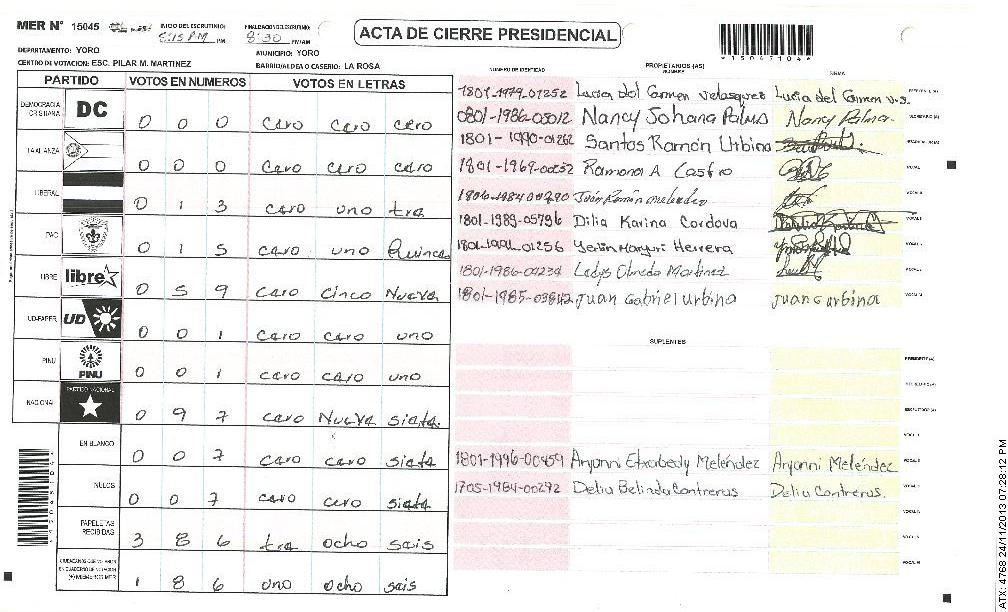 MER N° 15045
INICIO DEL ESCRUTINIO: 8:15 PM PM
FINALIZACION DEL ESCRUTINIO: 8:30 PM/AM
ACTA DE CIERRE PRESIDENCIAL
*15047104*
DEPARTAMENTO: YORO
MUNICIPIO: YORO
CENTRO DE VOTACION: ESC. PILAR M. MARTINEZ
BARRIO/ALDEA O CASERIO: LA ROSA
PARTIDO VOTOS EN NUMEROS VOTOS EN LETRAS
DEMOCRACIA CRISTIANA DC 0 0 0 cero cero cero
LA ALIANZA 0 0 0 cero cero cero
LIBERAL 0 1 3 cero uno tre
PAC 0 1 5 cero uno Quince
LIBRE libre 0 5 9 cero Cinco Nueve
UD-FAPER UD 0 0 1 cero cero uno
PINU PINU 0 0 1 cero cero uno
NACIONAL PARTIDO NACIONAL 0 9 7 cero Nueve siete
EN BLANCO 0 0 7 cero cero siete
NULOS 0 0 7 cero cero siete
PAPELETAS RECIBIDAS 3 8 6 tre ocho seis
1 8 6 uno ocho seis
NUMERO DE IDENTIDAD PROPIETARIOS (AS) NOMBRE FIRMA
1801-1979-01252 Lucia del Carmen Velasquez Lucia del Carmen v.s.
0801-1986-05012 Nancy Johana Palma Nancy Palma
1801-1990-01262 Santos Ramón Urbina
1801-1969-00252 Ramona A Castro
1806-1984-00290
1801-1989-05796 Dilia Karina Cordova
1801-1994-01256 Herrera
1801-1986-00234 Ledys Olmeda Martinez
1801-1985-03842 Juan Gabriel urbina Juan G urbina
SUPLENTES
1801-1996-00459 Aryanni Etxabedy Meléndez Aryanni Meléndez
1705-1984-00292 Delia Belinda Contreras Delia Contreras.
ATX: 4768 24/11/2013 07:28:12 PM